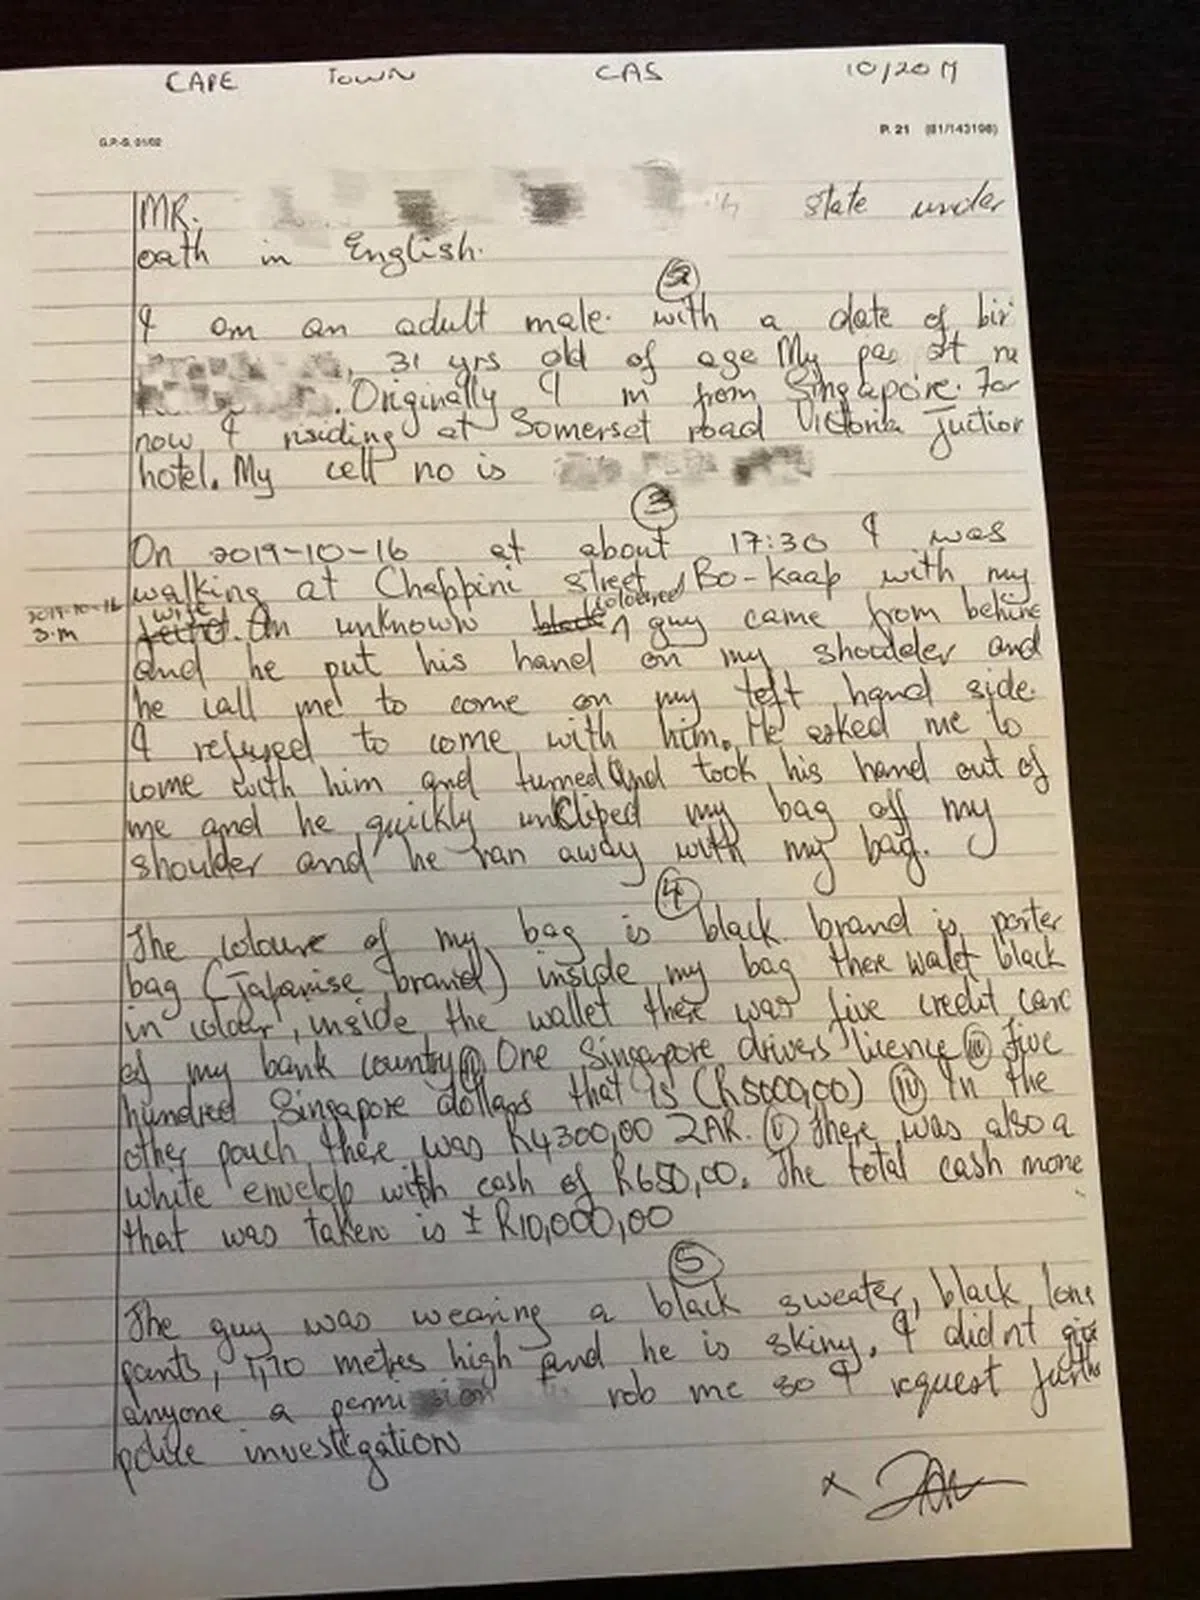 CAPE TOWN CAS 10/2019
G.P.-S. 01/02
P. 21 (81/143198)
MR. state under
oath in English.
2
I am an adult male. with a date of bir
, 31 yrs old of age My pas
. Originally I m from Singapore. For
now I residing at Somerset road Victoria Juction
hotel. My cell no is
3
On 2019-10-16 at about 17:30 I was
walking at Chappini street, Bo-Kaap with my
2019-10-16 wife coloured
S.M . An unknown black ^ guy came from behine
and he put his hand on my shoulder and
he call me to come on my left hand side.
I refused to come with him. He asked me to
come with him and turned and took his hand out of
me and he quickly uncliped my bag off my
shoulder and he ran away with my bag.
4
The coloure of my bag is black brand is porter
bag (Japanise brand) inside my bag there walet black
in colour, inside the wallet there was five credit card
of my bank country (ii) One Singapore drivers licence (iii) five
hundred Singapore dollars that is (R5000,00) (iv) In the
other pouch there was R4300,00 ZAR. (v) There was also a
white envelop with cash of R650,00. The total cash mone
that was taken is ± R10,000,00
5
The guy was wearing a black sweater, black long
pants, 1,70 metres high and he is skiny. I didnt give
anyone a permission rob me so I request furthe
police investigation
x